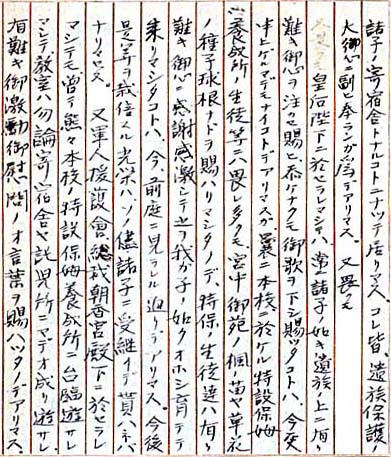 諸子ノ寄宿舎トナルコトニナツテ居リマス コレ皆遺族保護ノ
大御心ニ副ヒ奉ランガ為デアリマス。又畏クモ
皇后陛下ニ於セラレマシテハ、常ニ諸子ノ如キ遺族ノ上ニ有
難イ御心ヲ注ガ賜ヒ忝ケナクモ御歌ヲ下シ賜タコトハ、今更
申上ゲルマデモナイコトデアリマスガ、曩ニ本校ニ於ケル特設保姆
養成所ノ生徒等ニハ畏レ多クモ、宮中御苑ノ桐苗ヤ草花
ノ種子球根ナドヲ賜ハリマシタノデ、特保ノ生徒達ハ有リ
難キ御心ニ感謝感激シテ立ヲ我ガ子ノ如クオホシ育テテ
来リマシタコトハ、今前庭ニ見ラレル通リデアリマス。今後
是等ヲ栽培スル光栄ハソノ儘諸子ニ受継イデ貰ハネバ
ナリマセヌ。又軍人援護會総裁朝香宮殿下ニ於セラレ
マシテモ曽テ態々本校ノ特設保姆養成所ニ台臨遊サレ
マシテ教室ハ勿論寄宿舎ヤ託児所ニマデオ成リ遊サレ
有難キ御激励御慰問ノオ言葉ヲ賜ハツタノデアリマス。